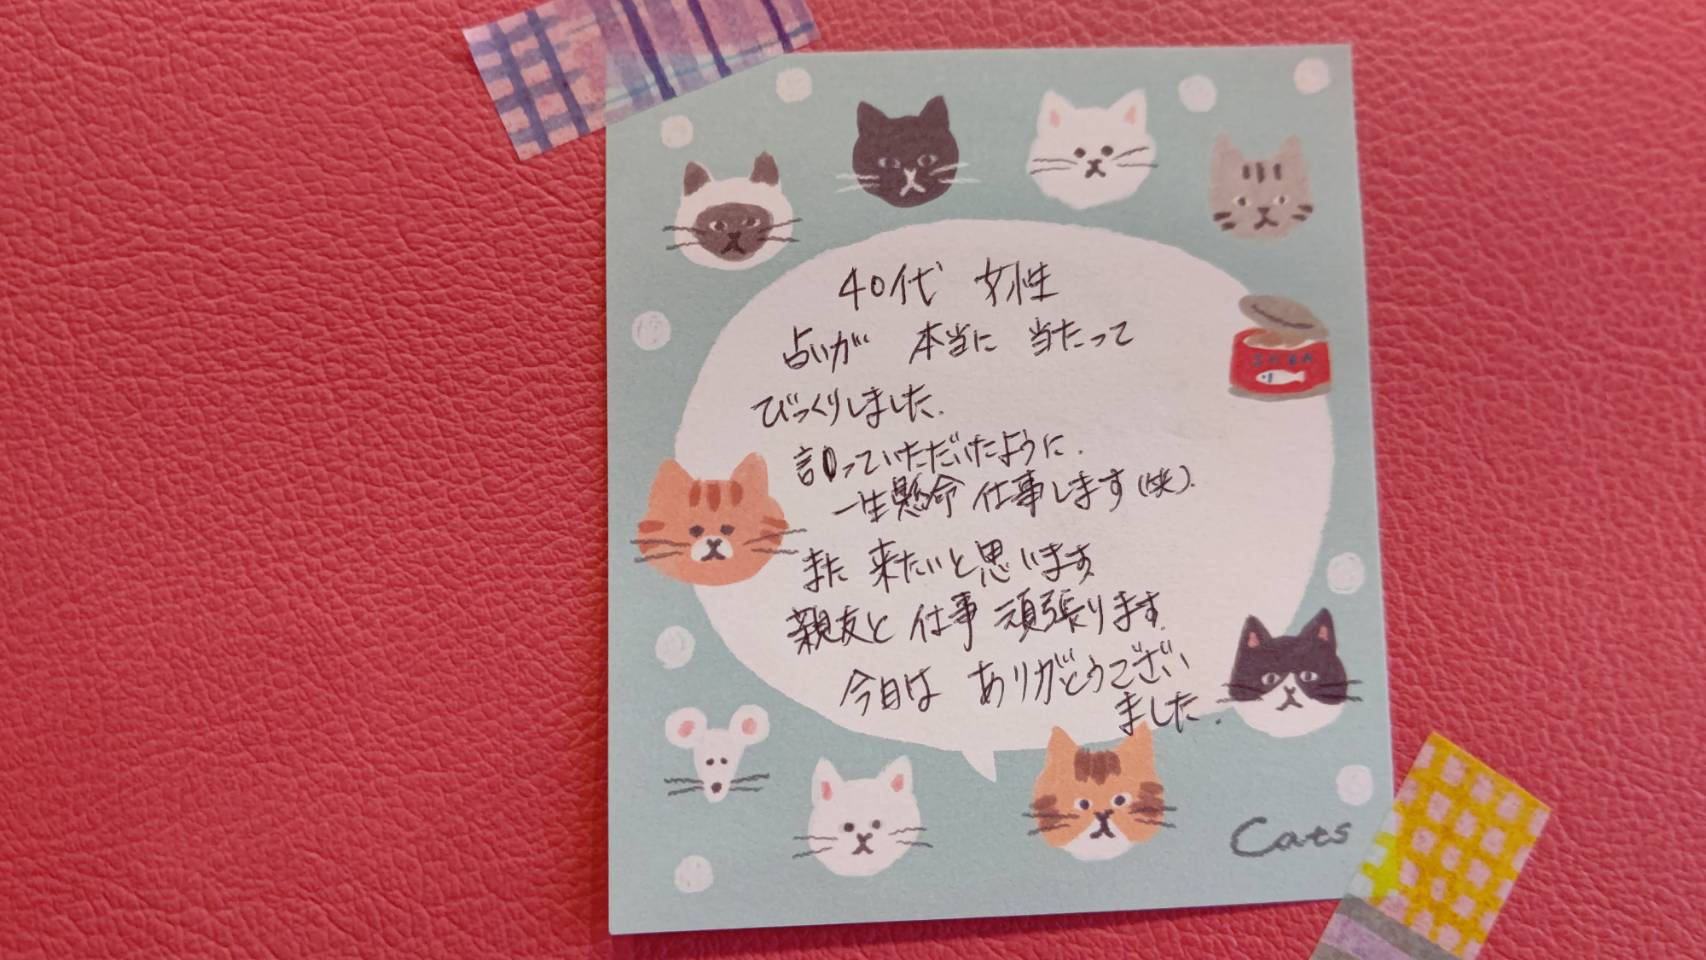 40代 女性
占いが 本当に 当たって
びっくりしました.
言っていただいたように.
一生懸命 仕事します(笑).
また 来たいと思います
親友と 仕事 頑張ります.
今日は ありがとうござい
ました.
Cats